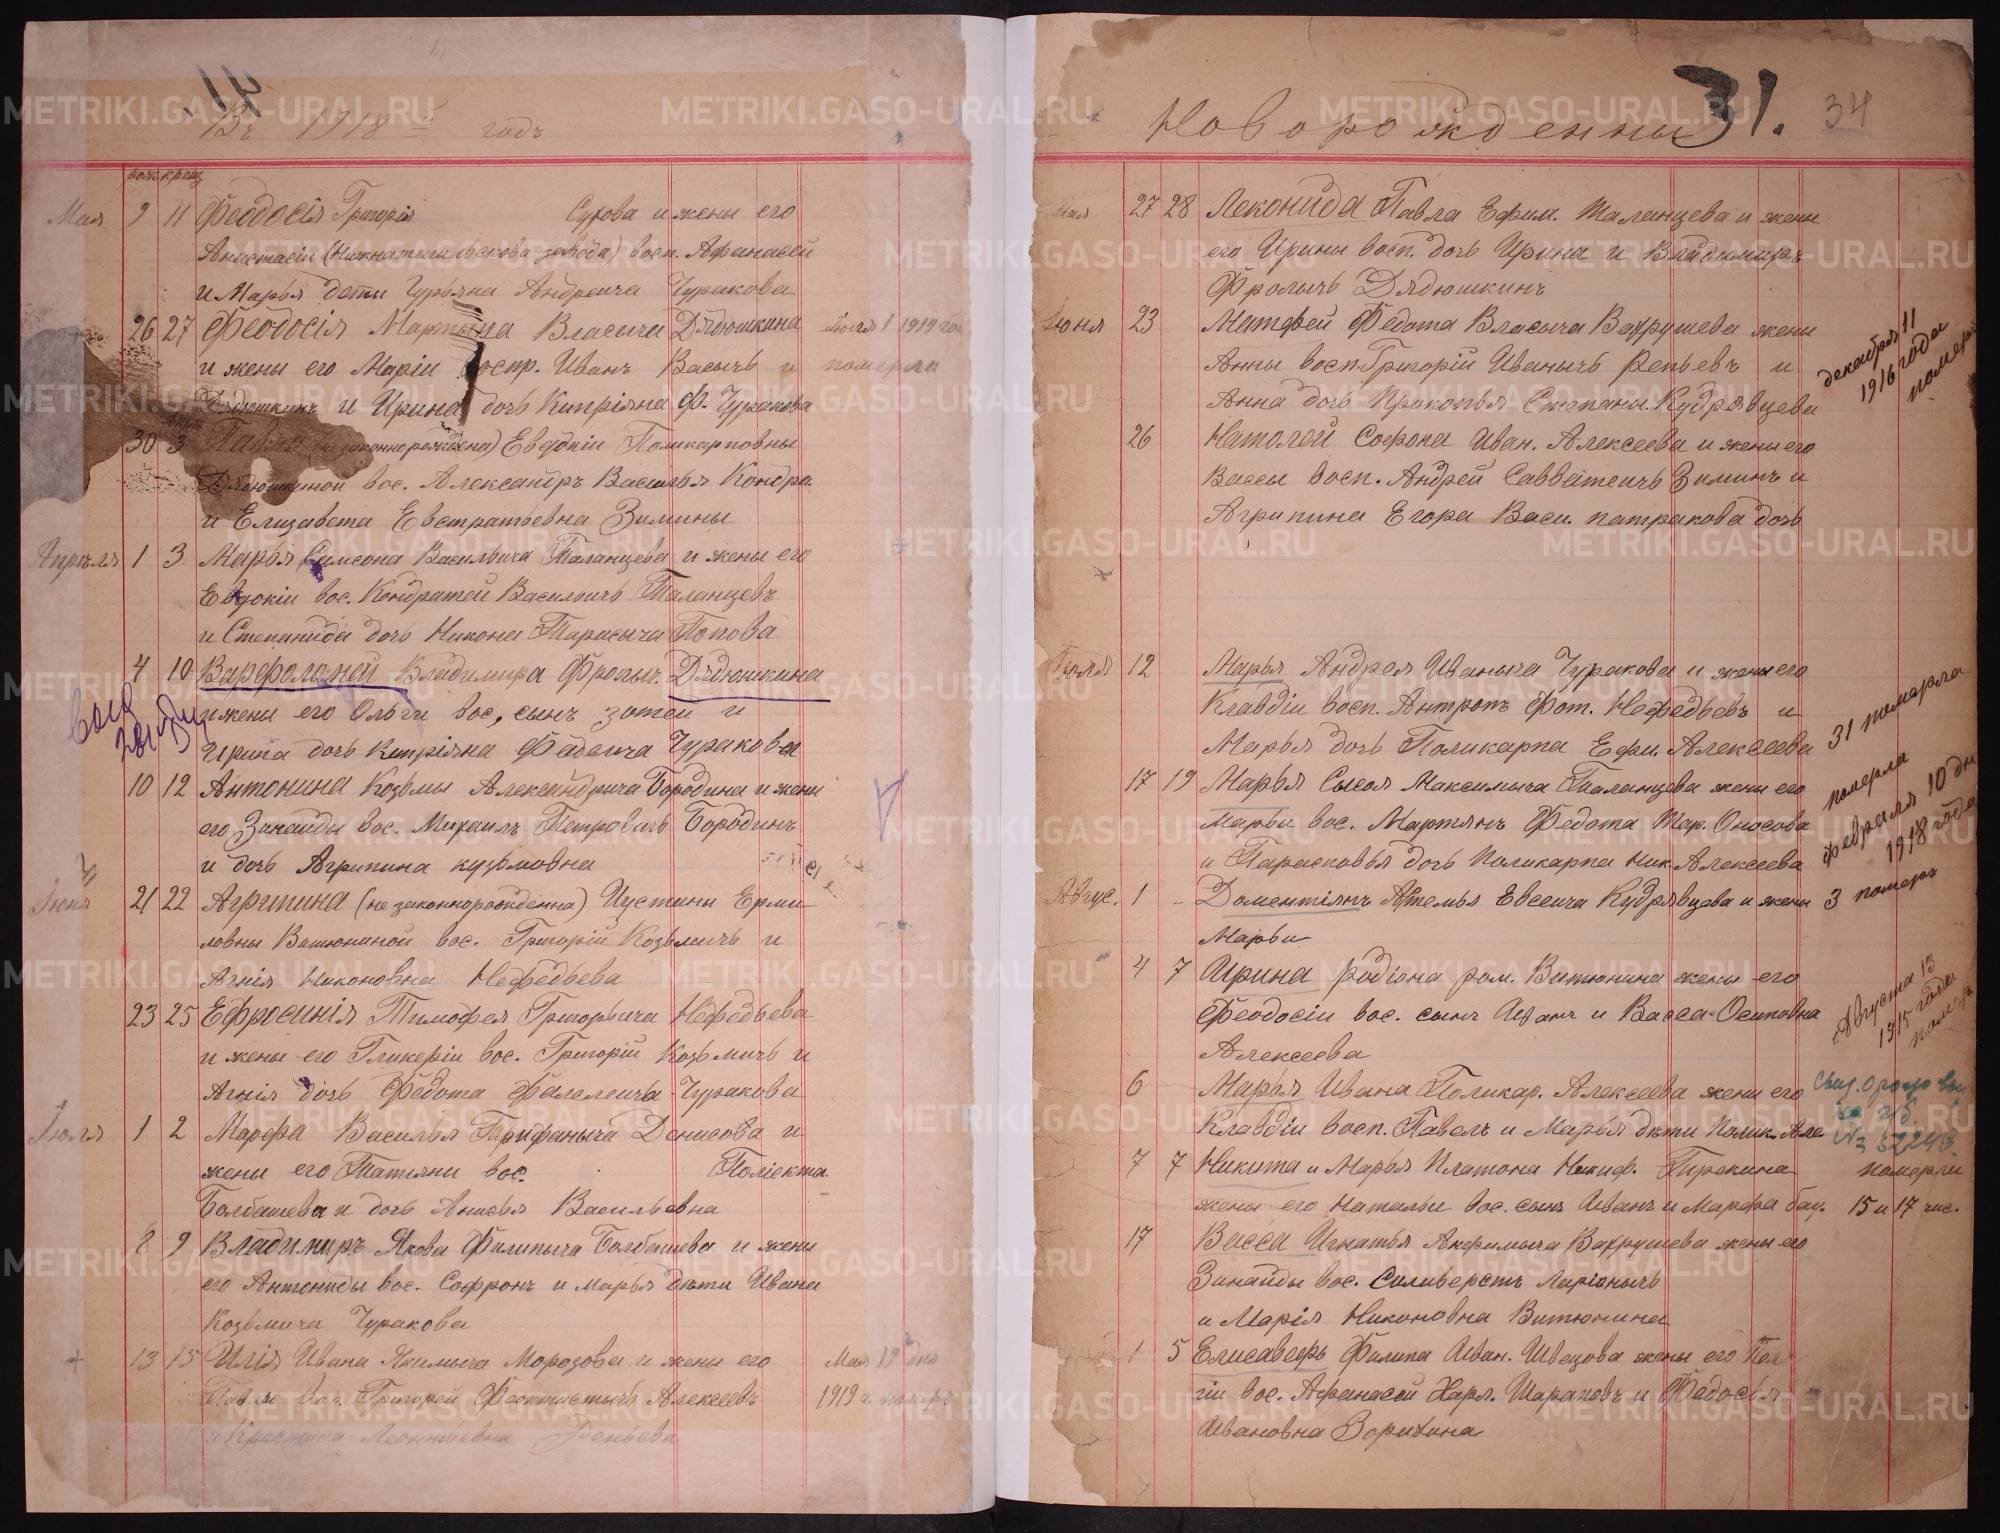 14.
Въ 1918 годъ
рожд. крещ.
Мая 9 11 Феодосія Григорія Сухова и жены его
Анастасіи (Нижнатагильскова завода) восп. Афанасей
и Марья дети Гурьяна Андреича Чуракова
26 27 Феодосія Мартына Власыча Дядюшкина Іюля 1 1919 го
и жены его Маріи воспр. Иванъ Васычъ и померла
Дядюшкинъ и Ирина дочь Кипріяна Ф. Чуракова
30 3 Павла (не законнорождена) Евдокіи Поликарповны
Дядюшкиной вос. Александръ Василья Кондра.
и Елизавета Евстратьевна Зимины
Апрѣля 1 3 Марья Самсона Васильича Таланцева и жены его
Евдокіи вос. Кондратей Васильичъ Таланцевъ
и Степанида дочь Никона Тарасыча Попова
4 10 Варфоломей Владимира Фролыч. Дядюшкина
и жены его Ольги вос, сынъ Зотей и
Ирина дочь Кипріяна Фадеича Чуракова
10 12 Антонина Козьмы Александрыча Бородина и жены
его Зинаиды вос. Михаилъ Петровичъ Бородинъ
и дочь Агрипина кузьмовна
Іюня 21 22 Агрипина (не законнорожденна) Иустины Ерми
ловны Витюниной вос. Григорій Козьмичъ и
Агнія Никоновна Нефедьева
23 25 Ефросинія Тимофея Григорьича Нефедьева
и жены его Гликеріи вос. Григорій Козьмичъ и
Агнія дочь Федота Фалелеича Чуракова
Іюля 1 2 Марфа Василья Трифаныча Денисова и
жены его Татьяны вос. Поліекта.
Болбашева и дочь Анисья Васильевна
8 9 Владимиръ Якова Филипыча Болбашева и жены
его Антониды вос. Софронъ и Марья дѣти Ивана
Козьмича Чуракова
13 15 Илія Ивана Якимыча Морозова и жены его Мая 19 дня
вос. Григорей Феоктистычъ Алексеевъ 1919 г. померъ
и Христина Леонтьевна Репьева
Новорожденны 31. 34
Мая 27 28 Леконида Павла Ефим. Таланцева и жены
его Ирины восп. дочь Ирина и Владимиръ
Фролычъ Дядюшкинъ
Іюня 23 Матфей Федота Власыча Вахрушева жены
Анны восп. Григорій Иванычъ Репьевъ и
Анна дочь Прокопья Степаны. Кудрявцева
декабря 11
1916 года
померъ
26 Натолей Софона Иван. Алексеева и жены его
Вассы восп. Андрей Савватеичъ Зиминъ и
Агрипина Егора Васи. патракова дочь
Іюля 12 Марья Андрея Иваныча Чуракова и жены его
Клавдіи восп. Антропъ Фот. Нефедьевъ и
Марья дочь Поликарпа Ефи. Алексеева 31 памарла
17 19 Марья Сысоя Максимыча Таланцева жены его
Марьи вос. Мартянъ Федота Тар. Оносова
и Парасковья дочь Поликарпа Ник. Алексеева
померла
февраля 10 дн
1918 года
Авгус. 1 - Доментіянъ Артемья Евсеича Кудрявцева и жены 3 померъ
Марьи
4 7 Ирина Родіона ром. Витюнина жены его
Феодосіи вос. сынъ Иванъ и Васса Осиповна
Алексеева
Августа 13
1915 года
померъ
6 Марья Ивана Поликар. Алексеева жены его
Клавдіи восп. Павелъ и Марья дѣти Полик. Але
№ 32243.
7 7 Никита и Марья Платона Никиф. Трекина померли
жены его Натальи вос. сынъ Иванъ и Марфа бац. 15 и 17 чис.
17 Васса Игнатья Анфимыча Вахрушева жены его
Зинаиды вос. Силиверстъ Ларіонычъ
и Марія Никоновна Витюнина
1 5 Елисаветъ Филипа Иван. Швецова жены его Пел
гіи вос. Афанасей Харл. Шараповъ и Федосія
Ивановна Зорихина
METRIKI.GASO-URAL.RU